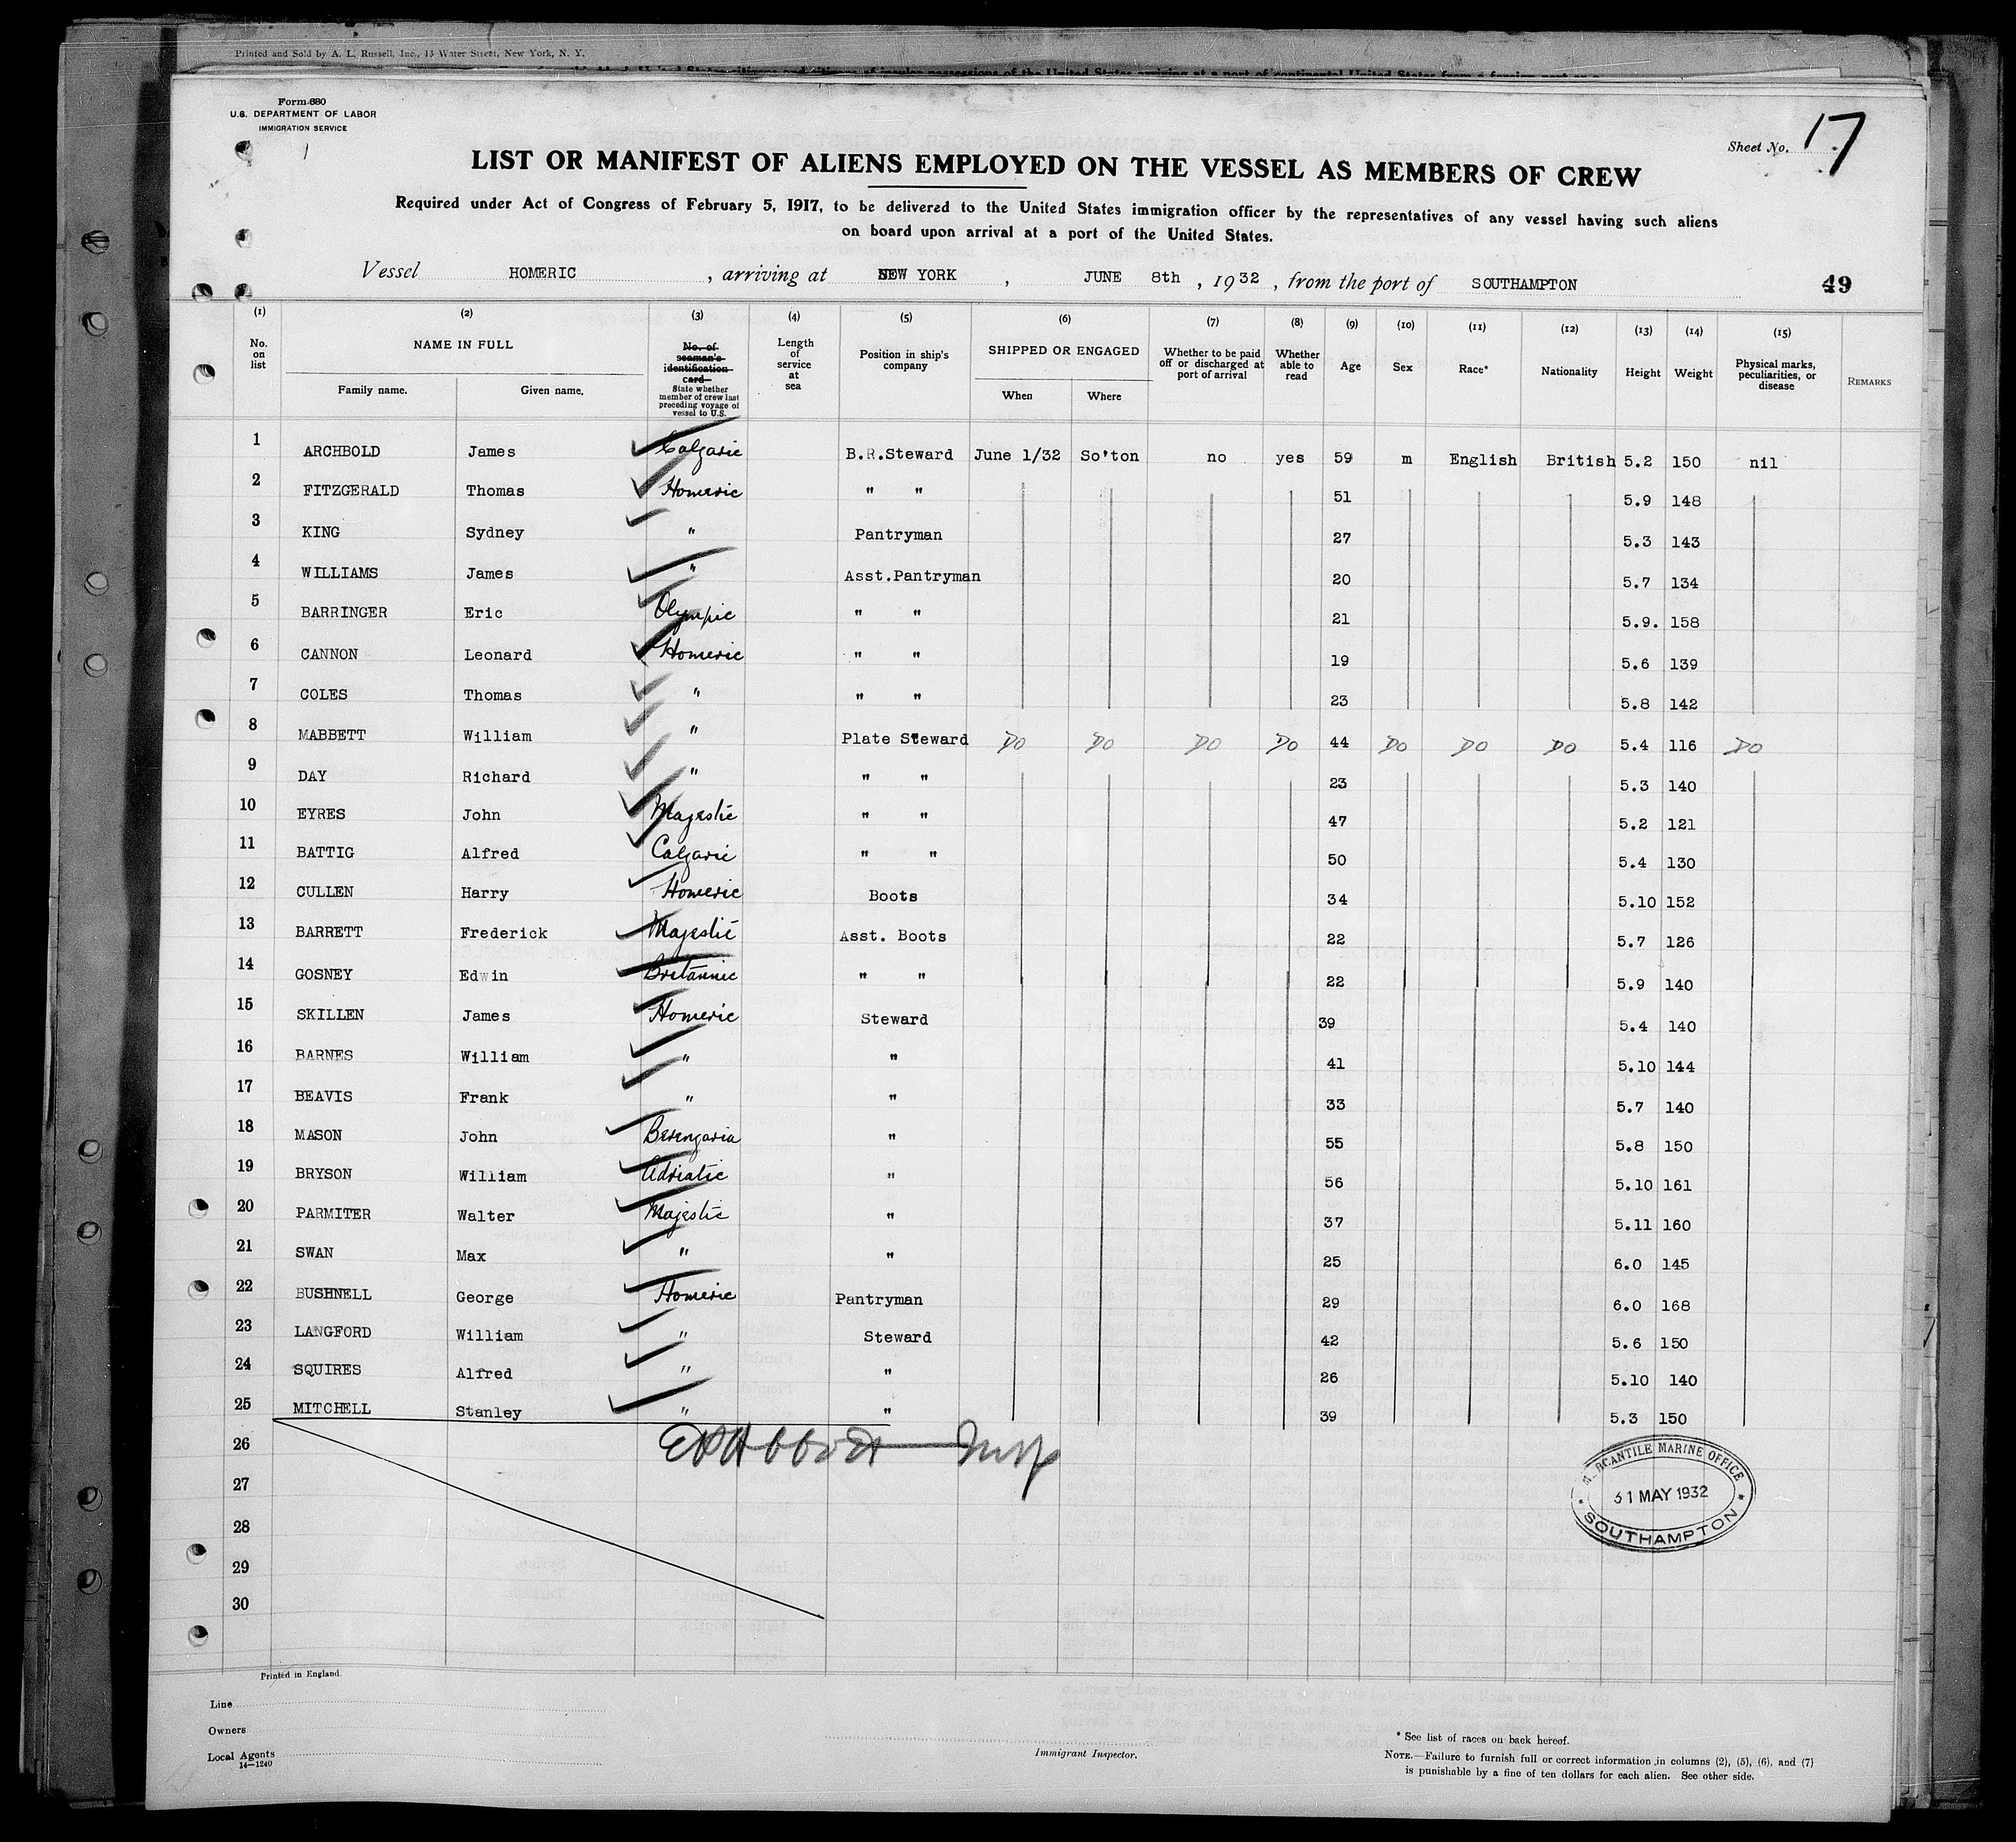 Printed and Sold by A. L. Russell, Inc., 13 Water Street, New York, N. Y.
Form 680
U.S. DEPARTMENT OF LABOR
IMMIGRATION SERVICE
Sheet No. 17
LIST OR MANIFEST OF ALIENS EMPLOYED ON THE VESSEL AS MEMBERS OF CREW
Required under Act of Congress of February 5, 1917, to be delivered to the United States immigration officer by the representatives of any vessel having such aliens
on board upon arrival at a port of the United States.
Vessel HOMERIC, arriving at NEW YORK, JUNE 8th, 1932, from the port of SOUTHAMPTON
49
(1) (2) (3) (4) (5) (6) (7) (8) (9) (10) (11) (12) (13) (14) (15)
No. on list
NAME IN FULL
Family name. Given name.
No. of seaman's identification card
State whether member of crew last preceding voyage of vessel to U.S.
Length of service at sea
Position in ship's company
SHIPPED OR ENGAGED
When Where
Whether to be paid off or discharged at port of arrival
Whether able to read
Age
Sex
Race*
Nationality
Height
Weight
Physical marks, peculiarities, or disease
REMARKS
1 ARCHBOLD James Calgaric B.R.Steward June 1/32 So'ton no yes 59 m English British 5.2 150 nil
2 FITZGERALD Thomas Homeric " " 51 5.9 148
3 KING Sydney " Pantryman 27 5.3 143
4 WILLIAMS James " Asst.Pantryman 20 5.7 134
5 BARRINGER Eric Olympic " " 21 5.9. 158
6 CANNON Leonard Homeric " " 19 5.6 139
7 COLES Thomas " " " 23 5.8 142
8 MABBETT William " Plate Steward DO DO DO DO 44 DO DO DO 5.4 116 DO
9 DAY Richard " " " 23 5.3 140
10 EYRES John Majestic " " 47 5.2 121
11 BATTIG Alfred Calgaric " " 50 5.4 130
12 CULLEN Harry Homeric Boots 34 5.10 152
13 BARRETT Frederick Majestic Asst. Boots 22 5.7 126
14 GOSNEY Edwin Britannic " " 22 5.9 140
15 SKILLEN James Homeric Steward 39 5.4 140
16 BARNES William " " 41 5.10 144
17 BEAVIS Frank " " 33 5.7 140
18 MASON John Berengaria " 55 5.8 150
19 BRYSON William Adriatic " 56 5.10 161
20 PARMITER Walter Majestic " 37 5.11 160
21 SWAN Max " " 25 6.0 145
22 BUSHNELL George Homeric Pantryman 29 6.0 168
23 LANGFORD William " Steward 42 5.6 150
24 SQUIRES Alfred " " 26 5.10 140
25 MITCHELL Stanley " " 39 5.3 150
26
27
28
29
30
MERCANTILE MARINE OFFICE
31 MAY 1932
SOUTHAMPTON
Printed in England.
Line
Owners
Local Agents
14—1240
Immigrant Inspector.
* See list of races on back hereof.
NOTE.—Failure to furnish full or correct information in columns (2), (5), (6), and (7)
is punishable by a fine of ten dollars for each alien. See other side.